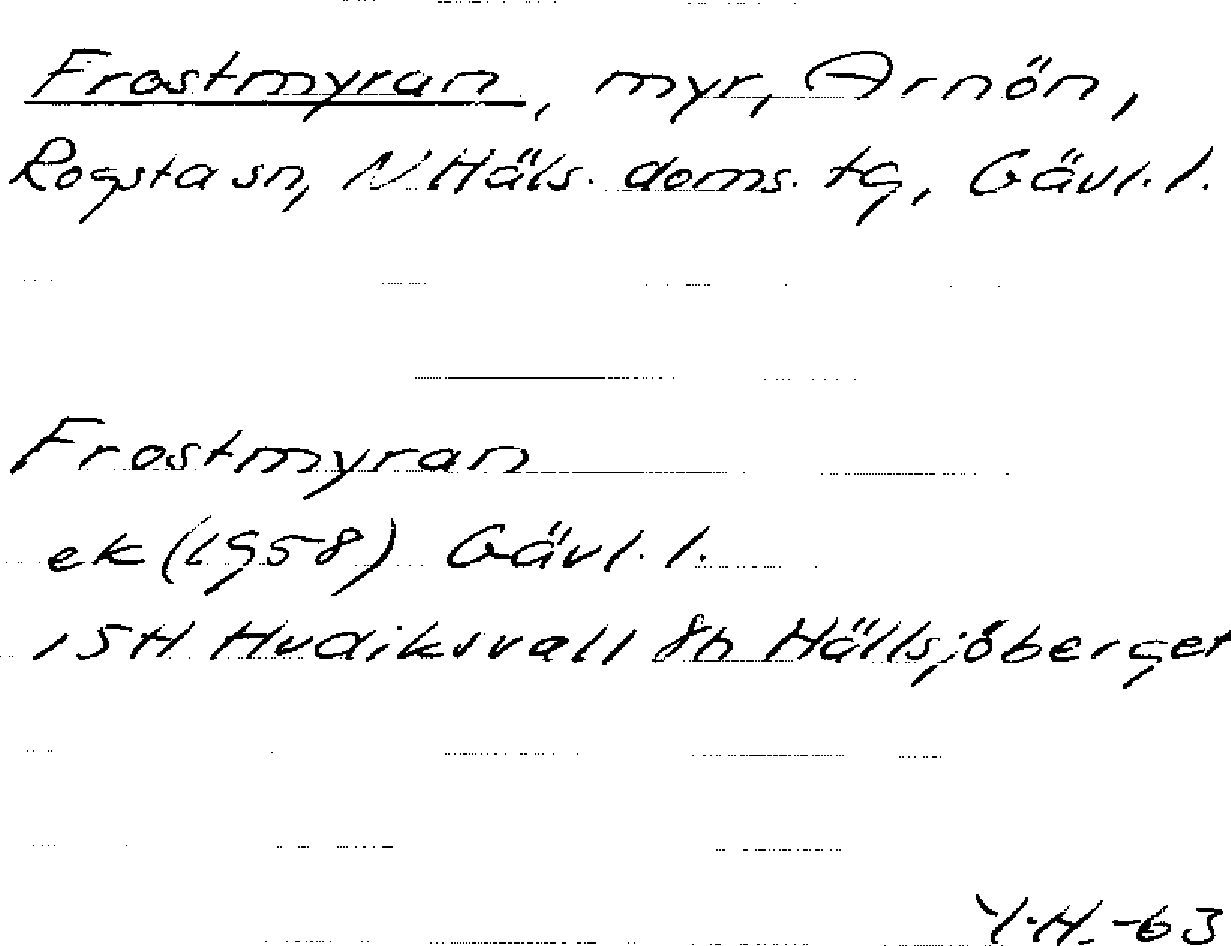 Frostmyran, myr, Arnön,
Rogsta sn, N. Häls. doms. tg, Gävl. l.
Frostmyran
ek (1958) Gävl. l.
15H Hudiksvall 8h Hällsjöberget
Y.H. -63